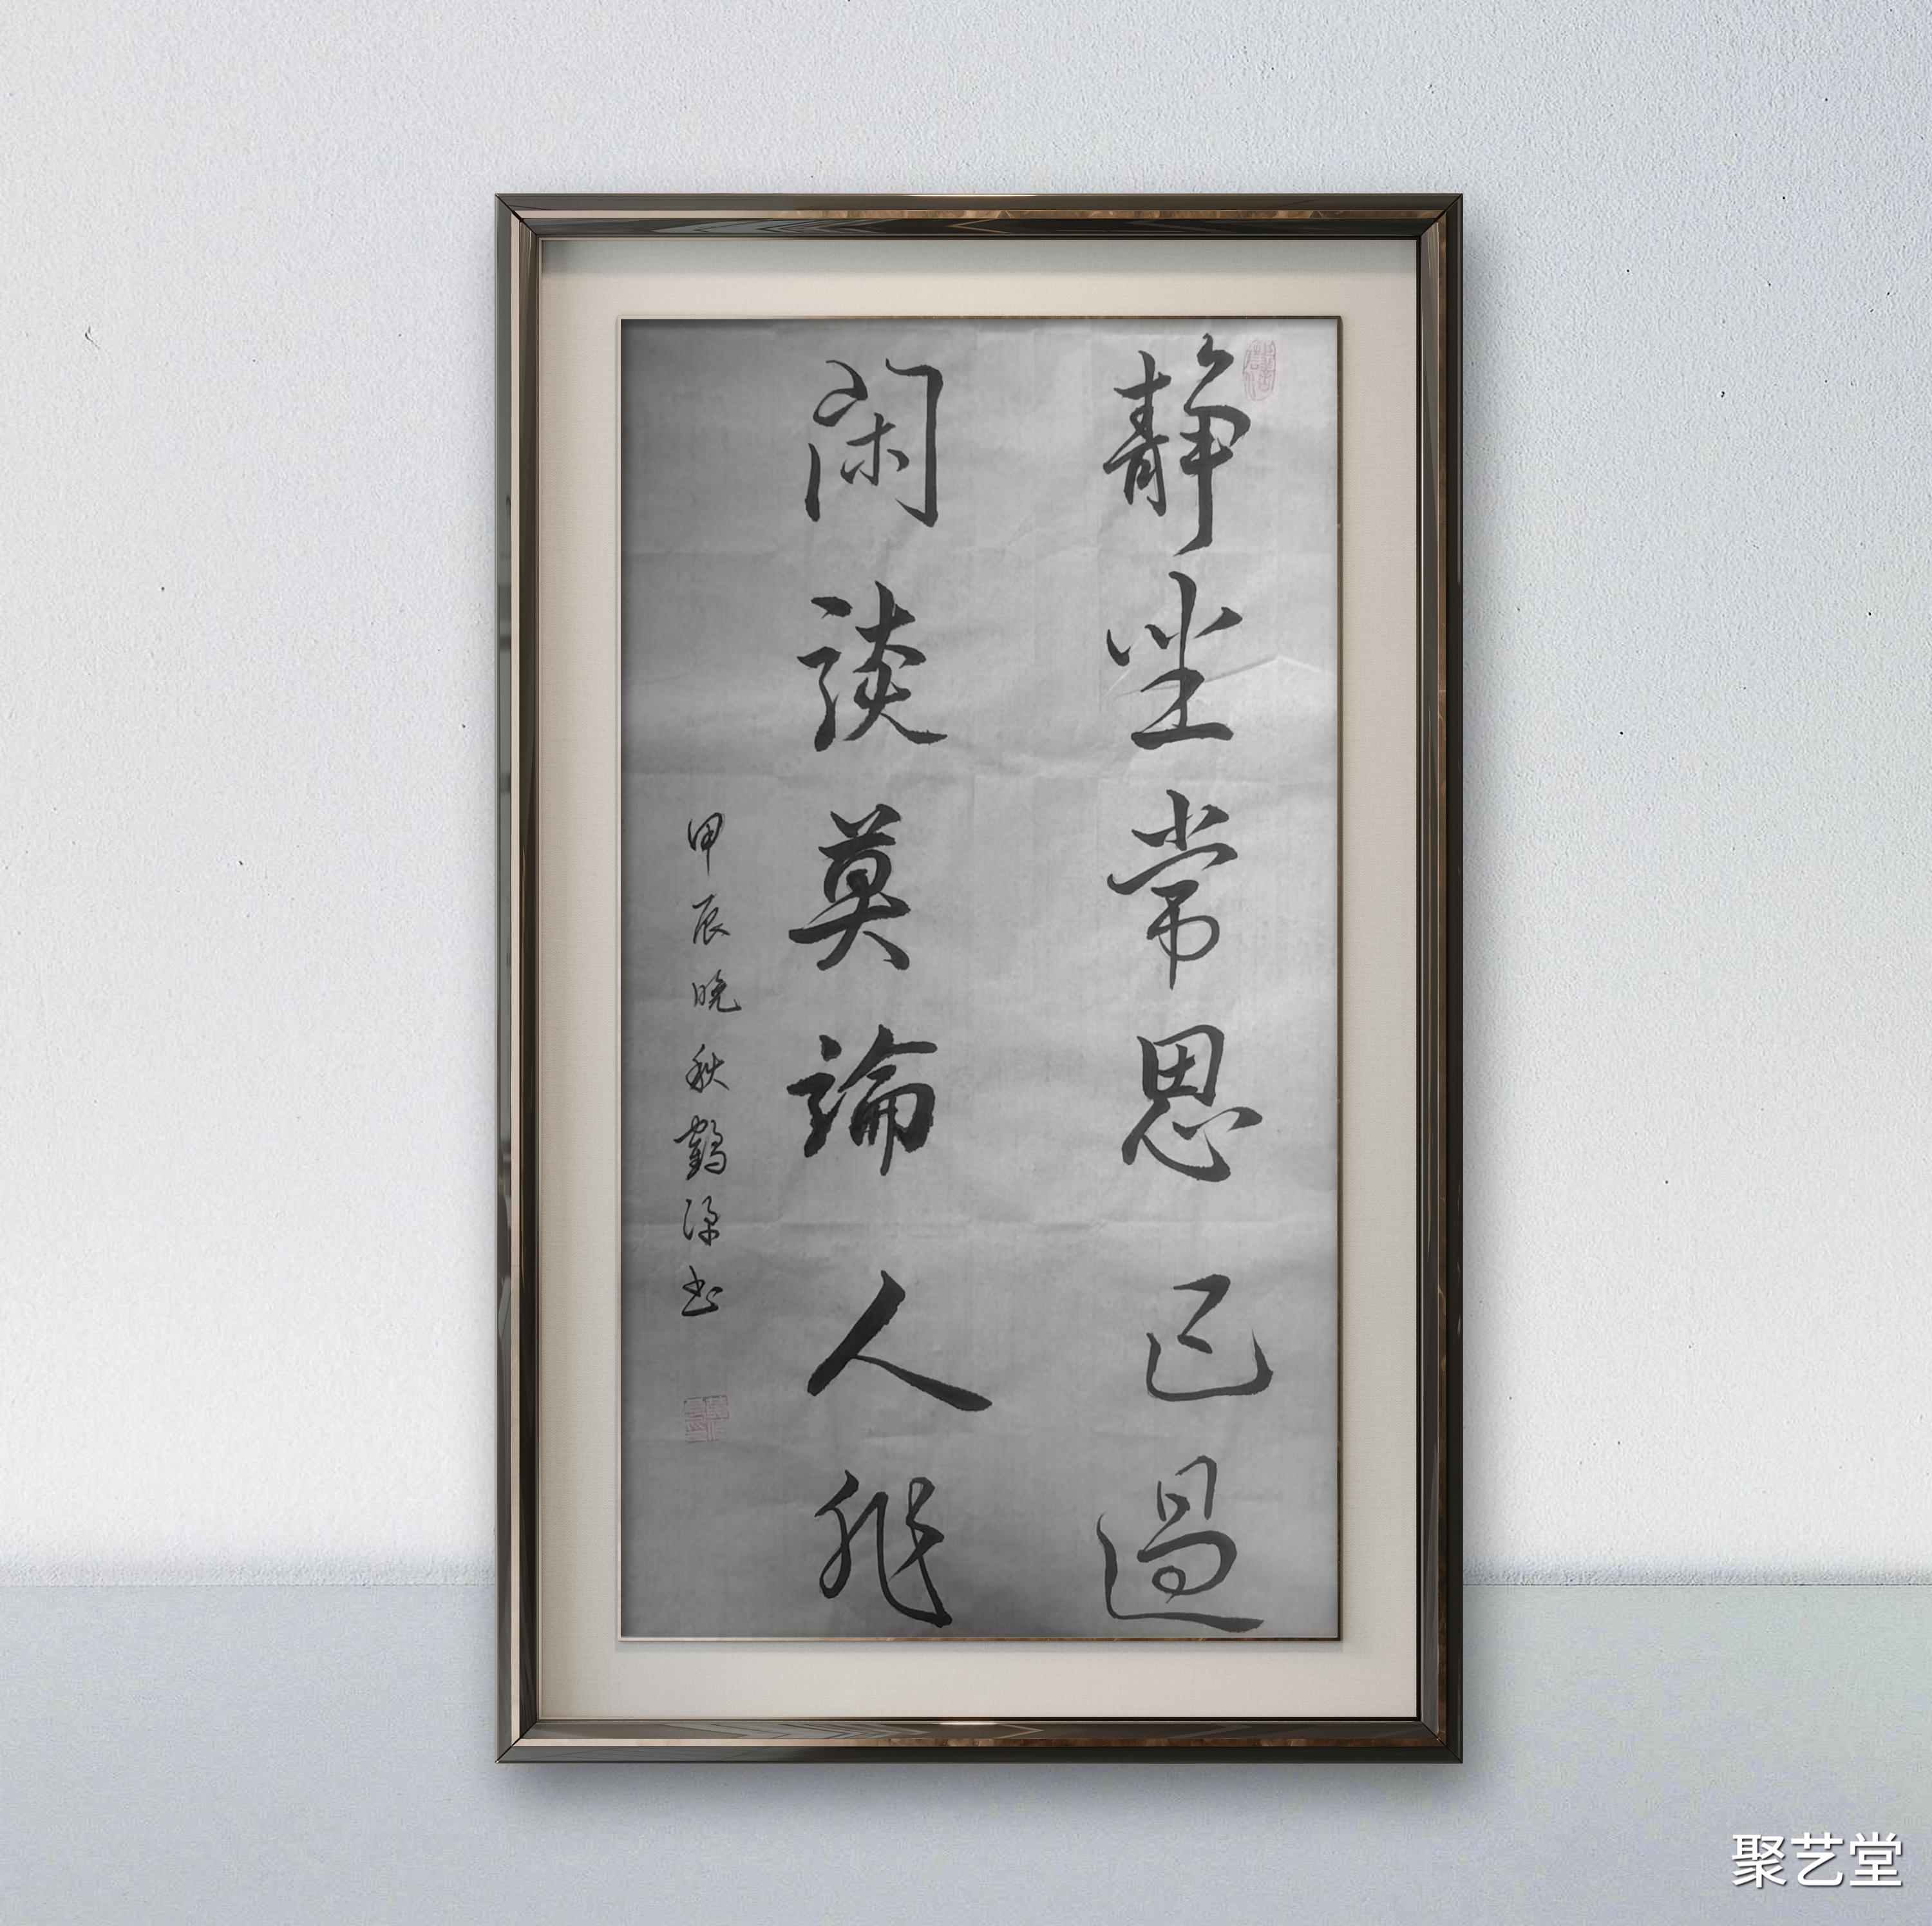 静坐常思己過
闲談莫論人非
甲辰晚秋鶴源书
聚艺堂